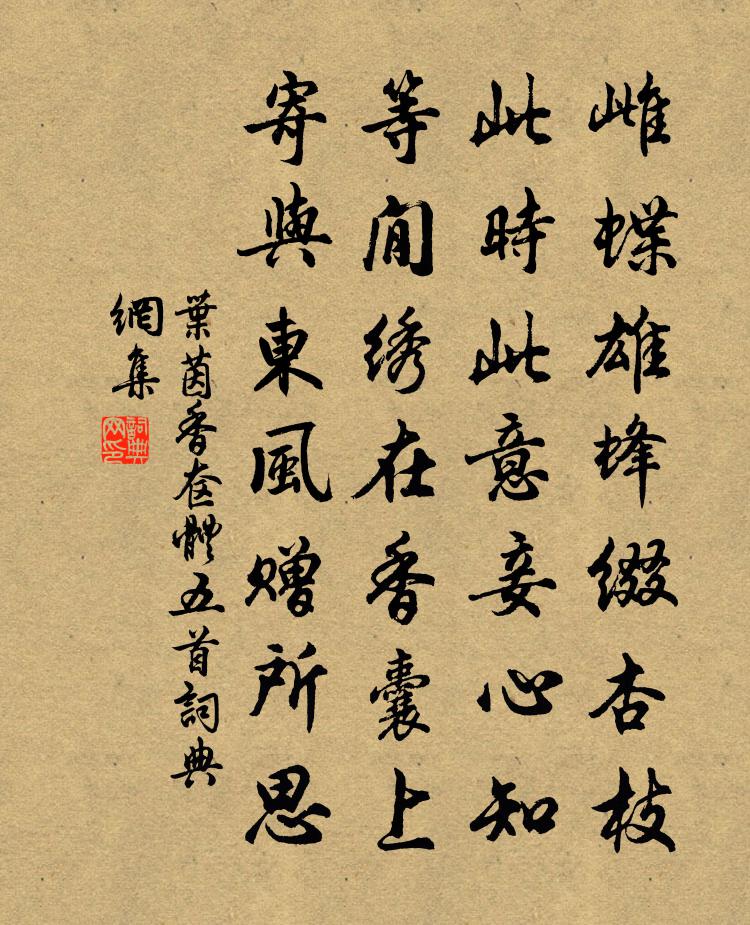 雌蝶雄蜂缀杏枝
此時此意妾心知
等閒绣在香囊上
寄與東風赠所思
葉茵香奩體五首詞典
網集
詞典
网印